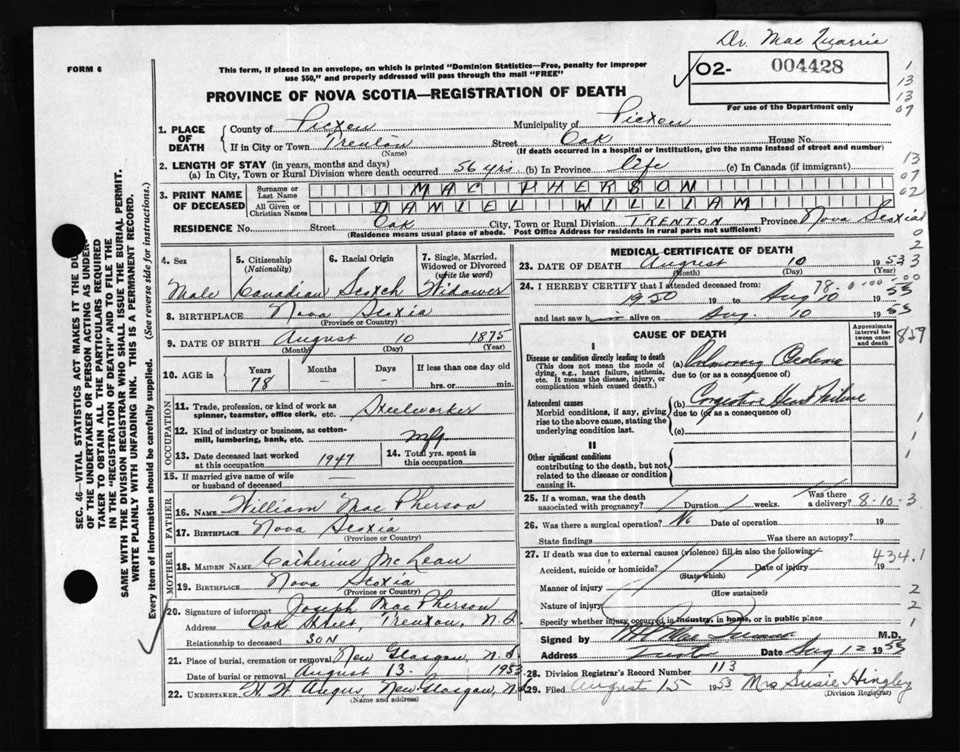 Dr. Mac Quarrie
FORM 6
This form, if placed in an envelope, on which is printed "Dominion Statistics—Free, penalty for improper
use $50," and properly addressed will pass through the mail "FREE"
02- 004428
For use of the Department only
PROVINCE OF NOVA SCOTIA—REGISTRATION OF DEATH
1
13
13
07
1. PLACE OF DEATH { County of Pictou Municipality of Pictou
If in City or Town Trenton (Name) Street Oak House No.
(If death occurred in a hospital or institution, give the name instead of street and number)
2. LENGTH OF STAY (in years, months and days)
(a) In City, Town or Rural Division where death occurred 56 yrs (b) In Province Life (c) In Canada (if immigrant)
13
07
02
3. PRINT NAME OF DECEASED { Surname or Last Name MAC PHERSON
All Given or Christian Names DANIEL WILLIAM
RESIDENCE No. Street Oak City, Town or Rural Division TRENTON Province Nova Scotia
(Residence means usual place of abode. Post Office Address for residents in rural parts not sufficient)
SEC. 46—VITAL STATISTICS ACT MAKES IT THE DUTY
OF THE UNDERTAKER OR PERSON ACTING AS UNDER-
TAKER TO OBTAIN ALL THE PARTICULARS REQUIRED
IN THE "REGISTRATION OF DEATH" AND TO FILE THE
SAME WITH THE DIVISION REGISTRAR WHO SHALL ISSUE THE BURIAL PERMIT.
WRITE PLAINLY WITH UNFADING INK. THIS IS A PERMANENT RECORD.
Every item of information should be carefully supplied. (See reverse side for instructions.)
4. Sex Male
5. Citizenship (Nationality) Canadian
6. Racial Origin Scotch
7. Single, Married, Widowed or Divorced (write the word) Widower
8. BIRTHPLACE Nova Scotia
(Province or Country)
9. DATE OF BIRTH August 10 1875
(Month) (Day) (Year)
10. AGE in { Years 78 Months — Days — If less than one day old
hrs. or min.
OCCUPATION
11. Trade, profession, or kind of work as spinner, teamster, office clerk, etc. Steelworker
12. Kind of industry or business, as cotton-mill, lumbering, bank, etc. mfg
13. Date deceased last worked at this occupation 1947
14. Total yrs. spent in this occupation
15. If married give name of wife or husband of deceased —
FATHER
16. NAME William Mac Pherson
17. BIRTHPLACE Nova Scotia
(Province or Country)
MOTHER
18. MAIDEN NAME Catherine McLean
19. BIRTHPLACE Nova Scotia
(Province or Country)
20. Signature of informant Joseph MacPherson
Address Oak Street, Trenton, N.S.
Relationship to deceased SON
21. Place of burial, cremation or removal New Glasgow, N.S.
Date of burial or removal August 13 1953
22. UNDERTAKER H W Angus, New Glasgow, N.S.
(Name and address)
MEDICAL CERTIFICATE OF DEATH
23. DATE OF DEATH August 10 1953
(Month) (Day) (Year)
24. I HEREBY CERTIFY that I attended deceased from:
78-0-00
1950 19 to Aug 10 1953
and last saw him alive on Aug. 10 1953
CAUSE OF DEATH
Approximate interval between onset and death
859
I
Disease or condition directly leading to death
(This does not mean the mode of dying, e.g., heart failure, asthenia, etc. It means the disease, injury, or complication which caused death.)
(a) Pulmonary Oedema
due to (or as a consequence of)
Antecedent causes
Morbid conditions, if any, giving rise to the above cause, stating the underlying condition last.
(b) Congestive Heart Failure
due to (or as a consequence of)
(c)
II
Other significant conditions
contributing to the death, but not related to the disease or condition causing it.
25. If a woman, was the death associated with pregnancy? Duration weeks. Was there a delivery?
8-10-3
26. Was there a surgical operation? No Date of operation 19
State findings Was there an autopsy?
27. If death was due to external causes (violence) fill in also the following:
434.1
Accident, suicide or homicide? Date of injury 19
(State which)
Manner of injury
(How sustained)
Nature of injury
Specify whether injury occurred in industry, in home, or in public place
Signed by M.D.
Address Date Aug 12 1953
28. Division Registrar's Record Number 113
29. Filed August 15 1953 Mrs Susie Hingley
(Division Registrar)